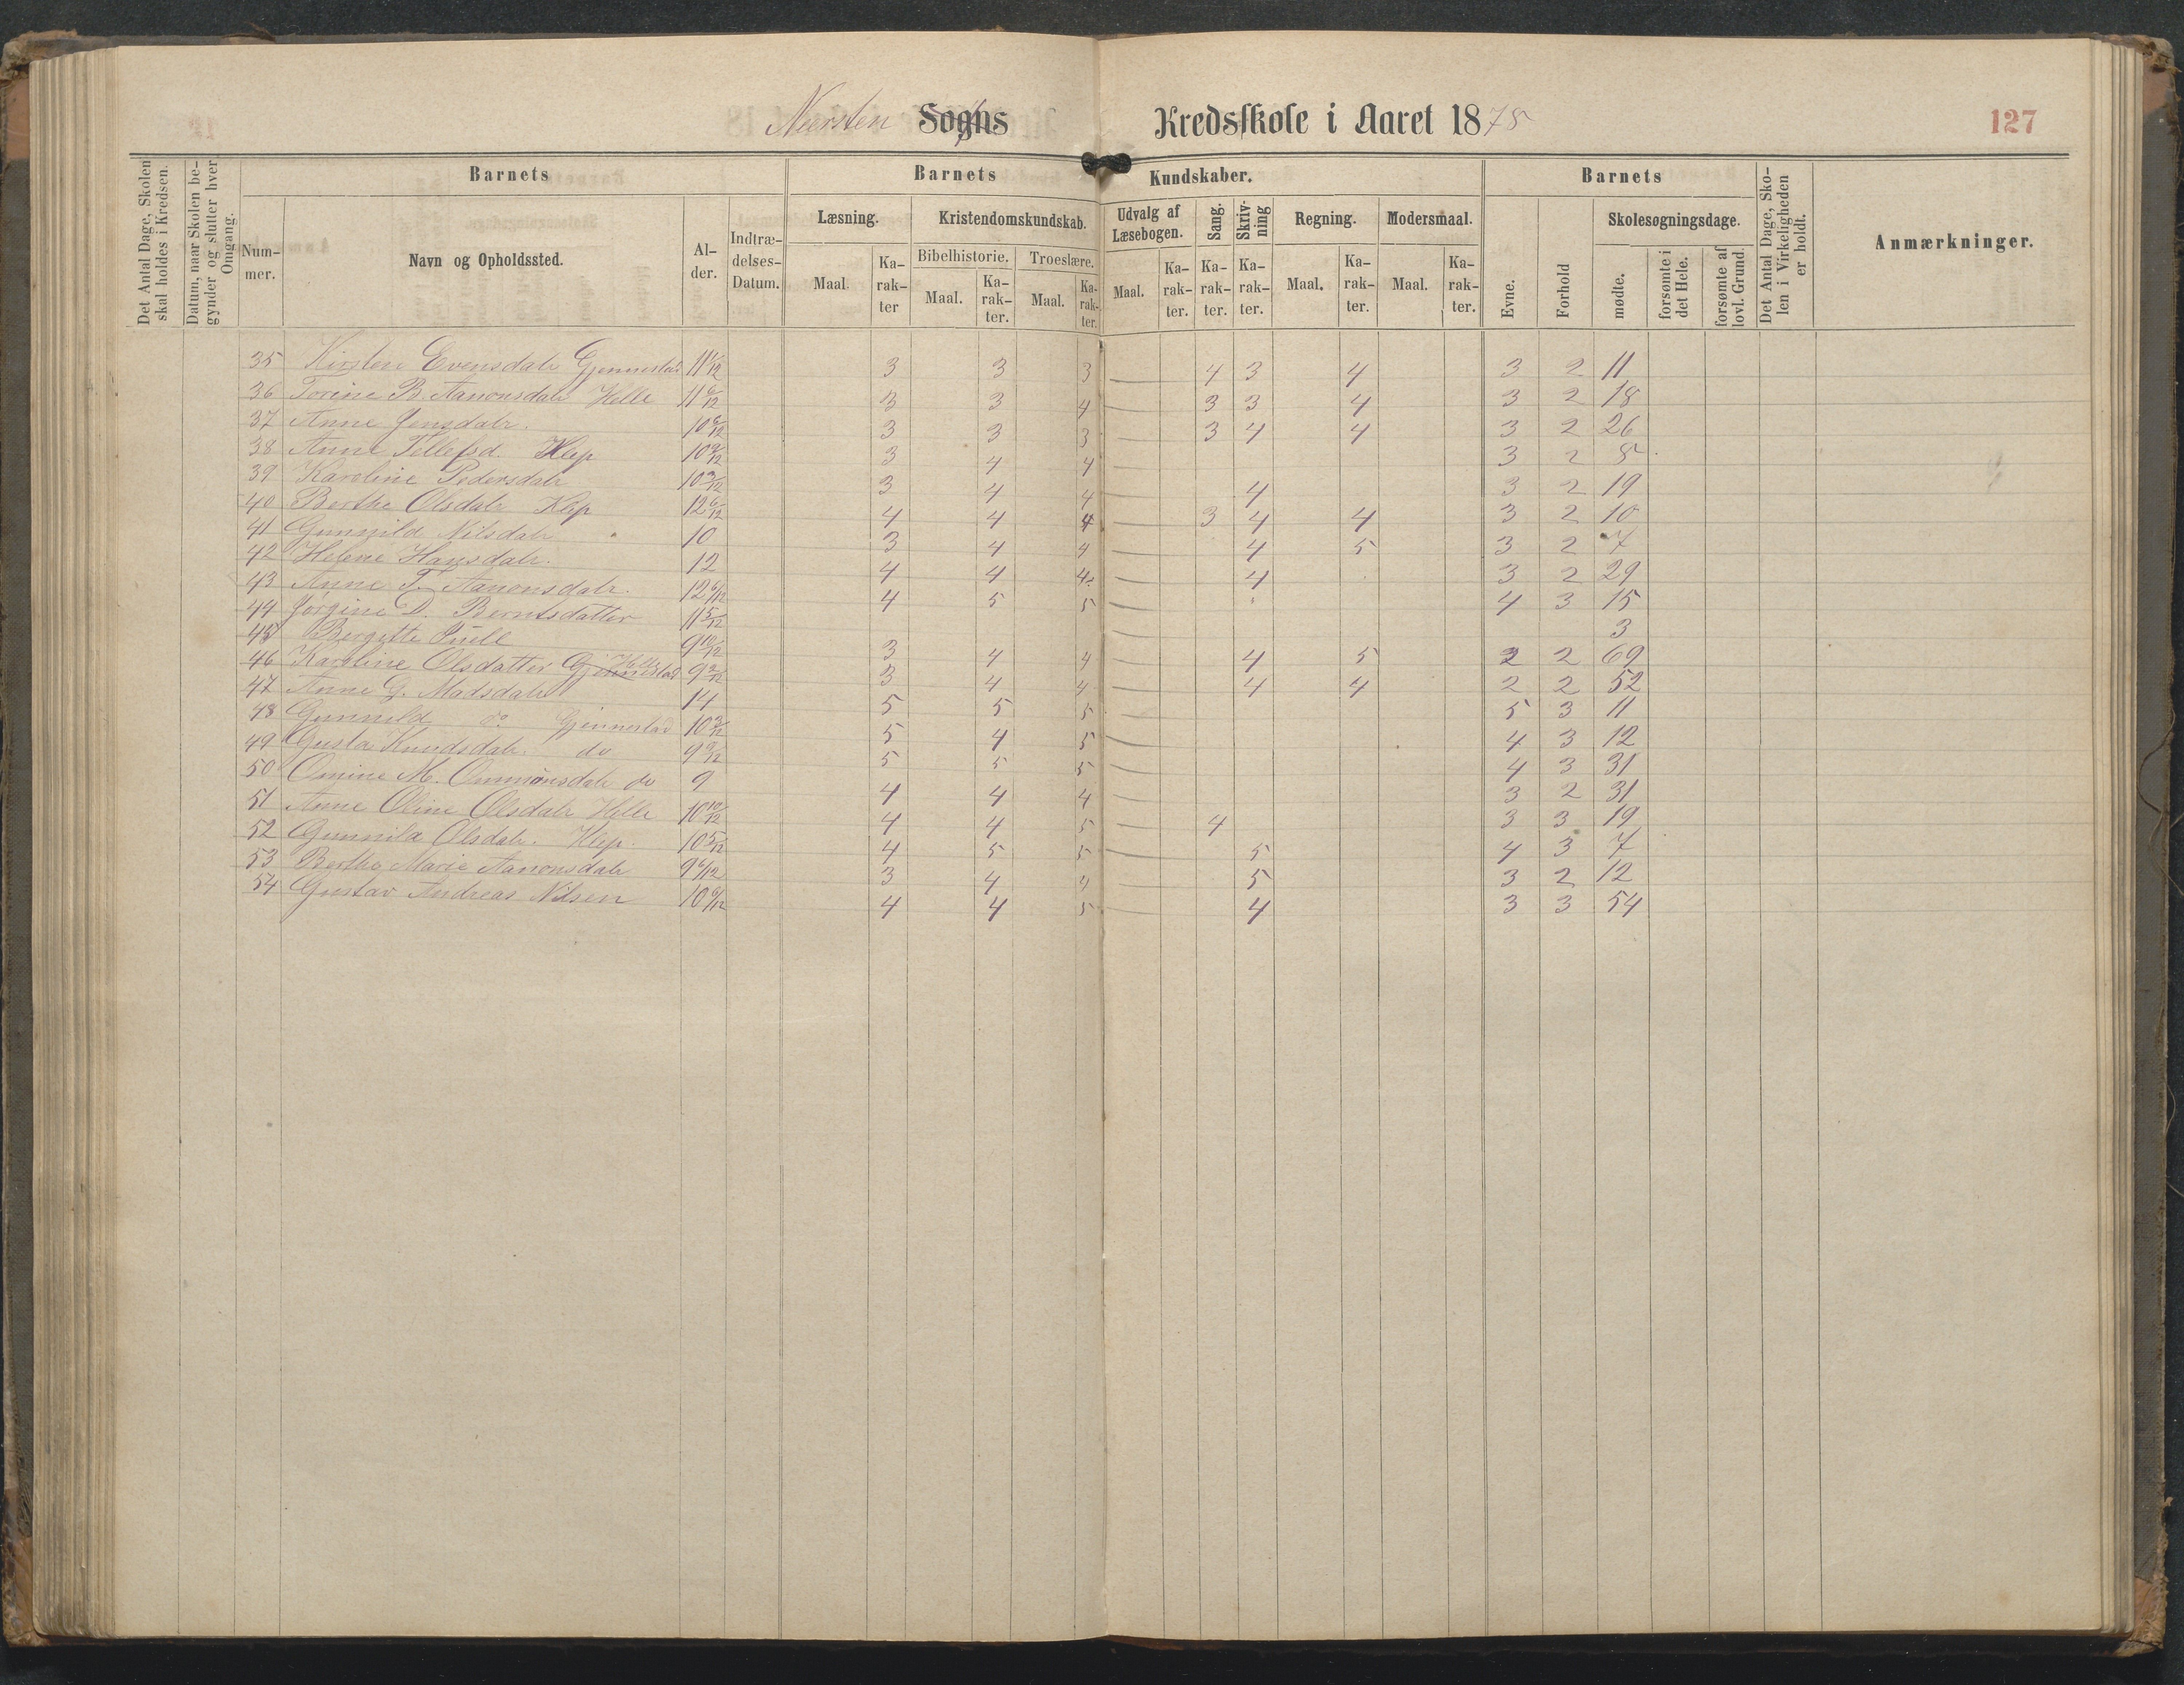 Sogns Kredsskole i Aaret 1878 127
Det Antal Dage, Skolen skal holdes i Kredsen.
Datum, naar Skolen begynder og slutter hver Omgang.
Barnets Barnets Kundskaber. Barnets
Nummer. Navn og Opholdssted. Alder. Indtrædelses-Datum.
Læsning. Kristendomskundskab. Udvalg af Læsebogen. Sang. Skrivning Regning. Modersmaal.
Bibelhistorie. Troeslære.
Maal. Karakter Maal. Karakter. Maal. Karakter. Maal. Karakter. Karakter. Karakter. Maal. Karakter. Maal. Karakter.
Evne. Forhold Skolesøgningsdage. mødte. forsømte i det Hele. forsømte af lovl. Grund.
Det Antal Dage, Skolen i Virkeligheden er holdt.
Anmærkninger.
35 Kirsten Evensdatr Gjennestad 11 1/12 3 3 3 — 4 3 4 3 2 11
36 Torine B. Aanonsdatr Helle 11 6/12 3 3 4 — 3 3 4 3 2 18
37 Anne Jensdatr. 10 6/12 3 3 3 — 3 4 4 3 2 26
38 Anne Tellefsd. Klep 10 9/12 3 4 4 — 3 2 5
39 Karoline Pedersdatr 10 3/12 3 4 4 — 4 3 2 19
40 Berthe Olsdatr Klep 12 6/12 4 4 4 — 3 4 4 3 2 10
41 Gunnild Nilsdatr " 10 3 4 4 — 4 5 3 2 7
42 Helene Hansdatr. 12 4 4 4 — 4 3 2 29
43 Anne T. Aanonsdatr. 12 6/12 4 5 5 — 4 3 15
44 Jørgine D. Berntsdatter 11 5/12 — 3
45 Bergitte 9 10/12 3 4 4 — 4 5 2 2 69
46 Karoline Olsdatter Gjennestad Helle 9 2/12 3 4 4 — 4 4 2 2 52
47 Anne G. Madsdatr 14 5 5 5 — 5 3 11
48 Gunnild do Gjennestad 10 3/12 5 4 5 — 4 3 12
49 Gusta Knudsdatr. do 9 9/12 5 5 5 — 4 3 31
50 Omine M. Ommonsdatr do 9 4 4 4 — 3 2 31
51 Anne Oline Olsdatr Helle 10 10/12 4 4 5 — 4 3 3 19
52 Gunnild Olsdatr. Klep. 10 5/12 4 5 5 — 5 4 3 7
53 Berthe Marie Aanonsdatr 9 6/12 3 4 4 — 5 3 2 12
54 Gustav Andreas Nilsen 10 6/12 4 4 5 — 4 3 3 54